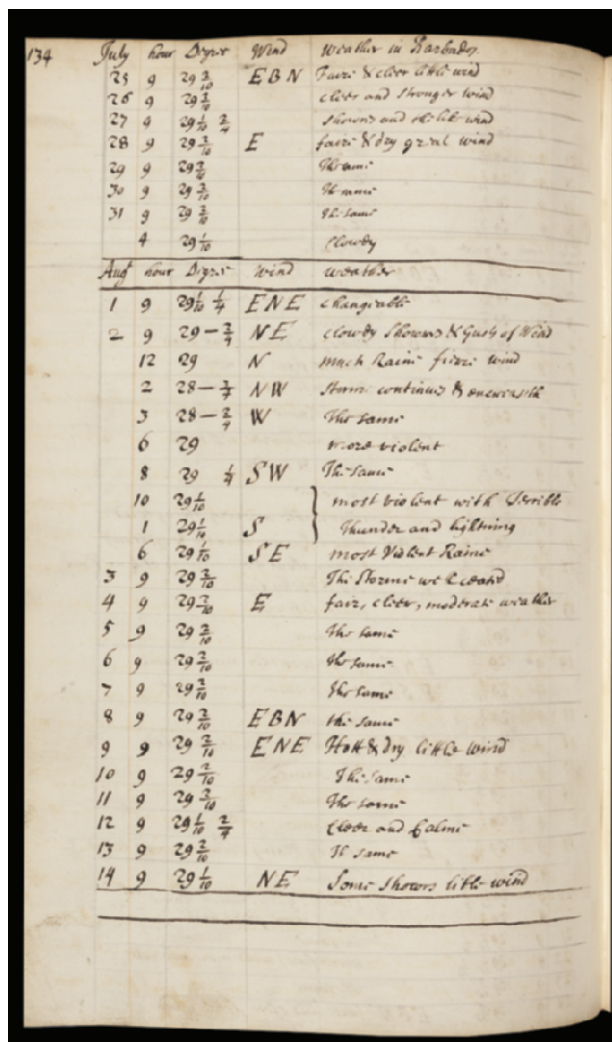 134 July hour Degree Wind Weather in Barbados
25 9 29 2/10 E B N Faire & cleer little wind
26 9 29 2/10 cleer and stronger wind
27 9 29 1/10 2/4 showrs and the like wind
28 9 29 2/10 E faire & dry great wind
29 9 29 2/10 The same
30 9 29 2/10 The same
31 9 29 2/10 The same
4 29 1/10 Clowdy
Augt hour Degree Wind weather
1 9 29 1/10 1/4 E N E changeable
2 9 29 – 2/4 N E clowdy Showrs & Gusts of Wind
12 29 N much Raine wind
2 28 – 3/4 N W Storme continues &
3 28 – 2/4 W The same
6 29 more violent
8 29 1/4 S W The same
10 29 1/10 most violent with Terrible
1 29 1/10 S Thunder and lightning
6 29 1/10 S E most Violent Raine
3 9 29 2/10 The Storme
4 9 29 2/10 E fair, cleer, moderate weather
5 9 29 2/10 The same
6 9 29 2/10 The same
7 9 29 2/10 The same
8 9 29 2/10 E B N the same
9 9 29 2/10 E N E Hott & dry little wind
10 9 29 2/10 The same
11 9 29 2/10 The same
12 9 29 1/10 2/4 Cleer and Calme
13 9 29 2/10 The same
14 9 29 1/10 N E Some Showrs little wind